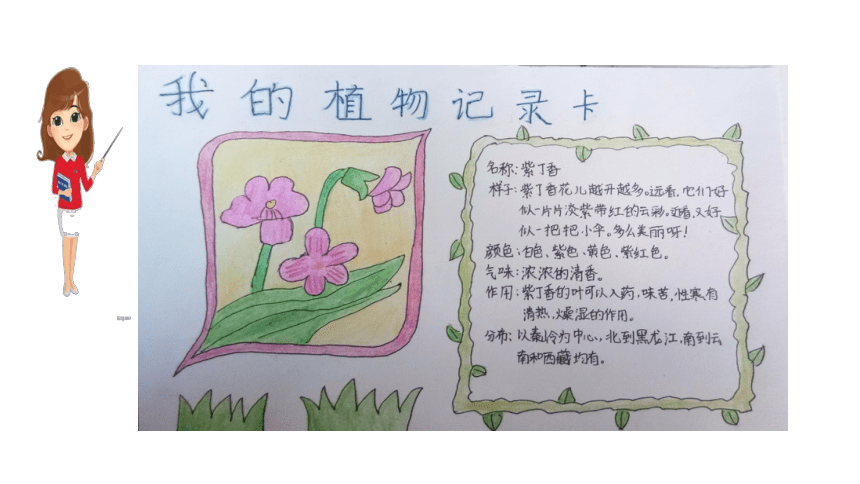 我的植物记录卡
名称：紫丁香
样子：紫丁香花儿越开越多。远看，它们好
似一片片淡紫带红的云彩。近看，又好
似一把把小伞。多么美丽呀！
颜色：白色、紫色、黄色、紫红色。
气味：浓浓的清香。
作用：紫丁香的叶可以入药，味苦，性寒，有
清热、燥湿的作用。
分布：以秦岭为中心，北到黑龙江，南到云
南和西藏均有。